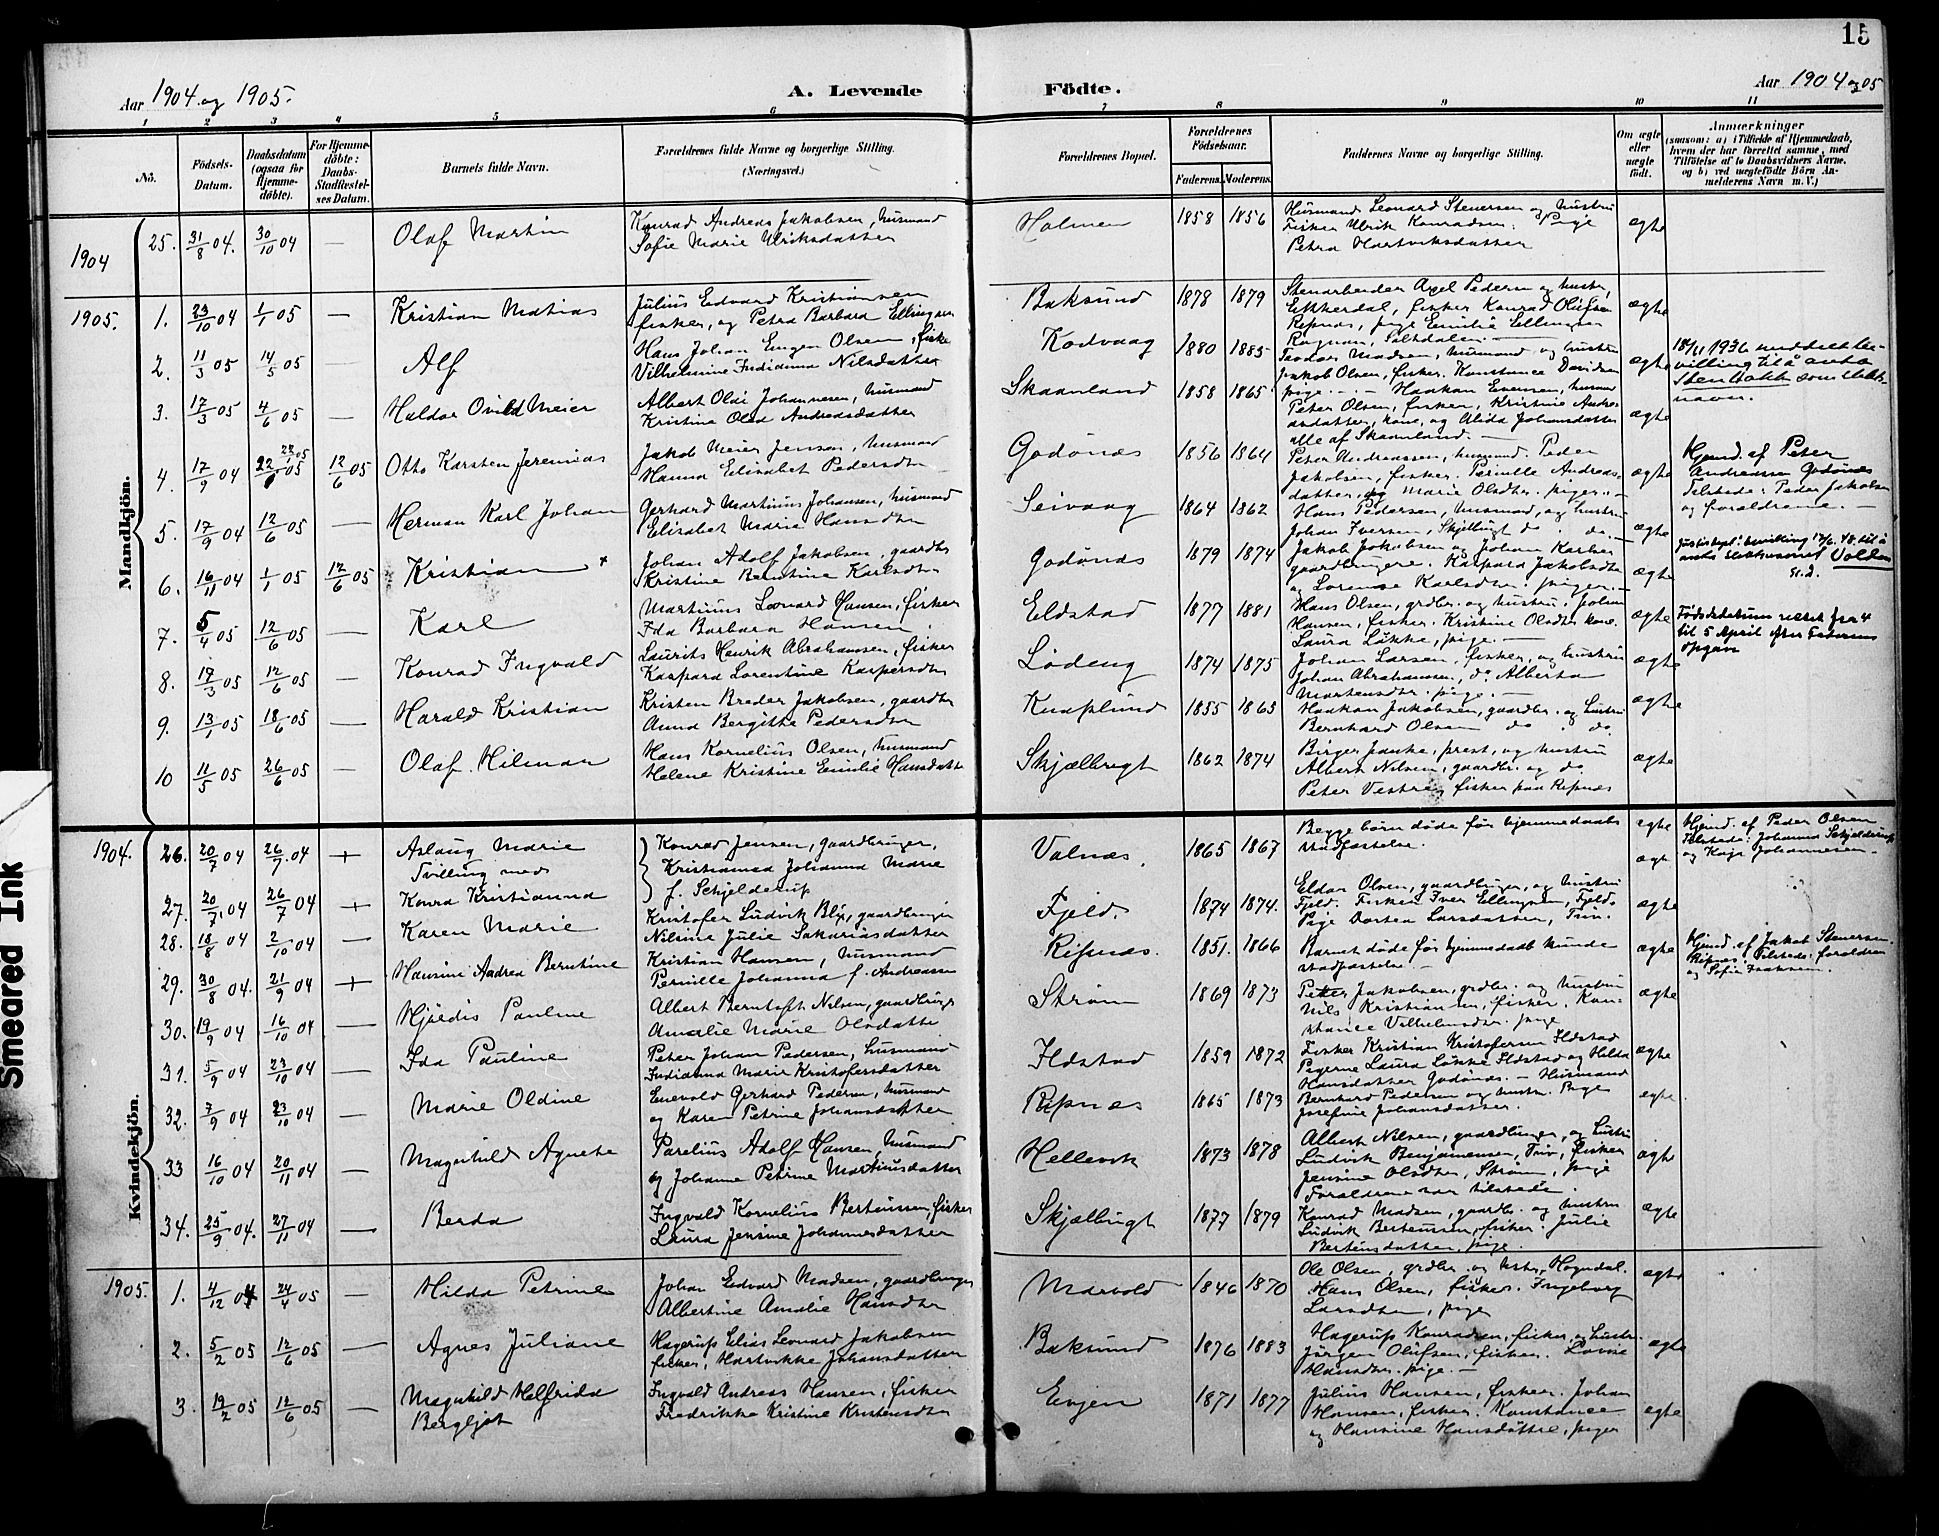 15
Aar 1904 og 1905.
A. Levende Födte.
Aar 1904 og 05
1 2 3 4 5 6 7 8 9 10 11
No.
Födsels-Datum.
Daabsdatum (ogsaa for Hjemme-döbte).
For Hjemme-döbte: Daabs-Stadfæstel-ses Datum.
Barnets fulde Navn.
Forældrenes fulde Navne og borgerlige Stilling. (Næringsvei.)
Forældrenes Bopæl.
Forældrenes Födselsaar.
Faderens. Moderens.
Faddernes Navne og borgerlige Stilling.
Om ægte eller uægte födt.
Anmærkninger
(saasom: a) i Tilfælde af Hjemmedaab, hvem der har forrettet samme, med Tilföielse af to Daabsvidners Navne, og b) ved uægtefödte Börn An-melderens Navn m. V.)
Mandkjön.
1904
25. 31/8 04. 30/10 04 — Olaf Martin
Konrad Andreas Jakobsen, husmand
Sofie Marie Ulriksdatter
Holmen 1858 1856
Husmand Leonard Stenersen og hustru
Fisker Ulrik Konradsen. Pige
Petra Hartviksdatter
ægte
1905.
1. 23/10 04 1/1 05 — Kristian Matias
Julius Edvard Kristiansen
fisker, og Petra Barbara Ellingsen
Baksund 1878 1879
Stenarbeider Axel Pedersen og hustru,
fisker Konrad Olufsen
Ripnes, pige Emilie Ellingsen
Rognan, Saltdalen —
ægte
2. 11/3 05 14/5 05 — Alf
Hans Johan Engen Olsen, fisker
Vilhelmine Indianna Nilsdatter
Kodvaag 1880 1885
Teodor Madsen, husmand og hustru
Jakob Olsen, fisker. Konstance Davidsen
pige. —
ægte
18/11 1936 meddelt be-
villing til å anta
Stenbakk som slekts-
navn.
3. 17/3 05 4/6 05 — Haldor Ovild Meier
Albert Olai Johannesen, husmand
Kristine Olea Andreasdatter
Skaanland 1858 1865
Haakon Evensen, husmand
Peter Olsen, fisker, Kristine Andre-
asdatter, kone, og Alida Johansdatter
alle af Skaanland. —
ægte
4. 17/9 04 22/1 05 12/6 05 Otto Karsten Jeremias
Jakob Meier Jenson, husmand
Hanna Elisabet Pedersdtr
Godönes 1856 1864
Peter Andreassen, husmand. Peder
Jakobsen, fisker. Pernille Andreas-
datter, og Marie Olsdtr. piger. —
ægte
Hjemd. af Peter
Andreasen Godönes
Tilstede: Peder Jakobsen
og forældrene. —
5. 17/9 04 12/6 05 — Herman Karl Johan
Gerhard Martinus Johansen, husmand
Elisabet Marie Hansdtr
Seivaag 1864 1862
Hans Pedersen, husmand, og hustru
Johan Iversen, Skjelbugt do do. —
ægte
6. 16/11 04 1/1 05 12/6 05 Kristian +
Johan Adolf Jakobsen, gaardbr
Kristine Berntine Karlsdtr
Godönes 1879 1874
Jakob Jakobsen og Johan Karlsen
gaardbrugere. Kaspara Jakobsdtr
og Lorense Karlsdtr. piger. —
ægte
Justisdept. bevilling 17/6. 48. til å
anta slektsnavnet Volden
7. 5/4 05 12/6 05 — Karl
Martinus Leonard Hansen, fisker
Ida Barbara Hansen
Eldstad 1877 1881
Hans Olsen, grdbr. og hustru. Johan
Hansen, fisker. Kristine Olsdtr kone.
Laura Lökke, pige. —
ægte
Födselsdatum rettet fra 4
til 5 April efter Faderens
Opgave
8. 17/3 05 12/6 05 — Konrad Ingvald
Laurits Henrik Abrahamsen, fisker
Kaspara Lorentine Kaspersdtr
Lödeng 1874 1875
Johan Larsen, fisker, og hustru
Johan Abrahamsen, do. Alberta
Martensdtr. pige. —
ægte
9. 13/1 05 18/6 05 — Harald Kristian
Kristen Breder Jakobsen, gaardbr
Anna Bergitte Pedersdtr
Knaplund 1855 1865
Haakon Jakobsen, gaardbr. og hustru
Bernhard Olsen do do.
ægte
10 11/5 05 26/6 05 — Olaf Hilmar
Hans Kornelius Olsen, husmand
Helene Kristine Emilie Hansdatter
Skjælbugt 1862 1874
Birger Janke, prest, og hustru
Albert Nilsen, gaardbr. og do
Peter Vestre, fisker paa Ripnæs
ægte
Kvindekjön.
1904.
26. 20/7 04 26/7 04 + Aslaug Marie
Tvilling med
27. 20/7 04 26/7 04 + Konra Kristianna
Konrad Jensen, gaardbruger,
Kristianna Johanna Marie
f. Schjelderup
Valnæs. 1865 1867
Begge börn döde för hjemmedaabs
stadfæstelse.
ægte
ægte
Hjemd. af Peder Olsen
Tilstede: Johanna Schjelderup
og Kaja Johannesen —
28. 18/8 04 2/10 04 — Karen Marie
Kristofer Ludvik Blix, gaardbruger
Nilsine Julie Sakariasdatter
Fjeld. 1874 1874.
Eldor Olsen, gaardbruger, og hustru
Fjeld. Fisker Iver Ellingsen, Fjeld.
Pige Dortea Larsdatter, Tuv.
ægte
29. 30/8 04. 21/9 04 + Hansine Andrea Berntine
Kristian Hansen, husmand
Pernille Johanna f. Andreassen
Ripnæs. 1851. 1866
Barnet döde för hjemmedaab kunde
stadfæstelse. —
ægte
Hjemd. af Jakob Stenersen.
Ripnes. Tilstede: forældrene
og Sofie Isaksen.
30. 19/9 04 16/10 04 — Hjördis Pauline
Albert Berntoft Nilsen, gaardbruger
Amalie Marie Olsdatter
Ström 1869 1873
Petter Jakobsen, grdbr. og hustru
Nils Kristiansen, fisker. Kon-
stance Vilhelmsdtr. pige
ægte
31. 5/9 04 23/10 04 — Ida Pauline
Peter Johan Pedersen, husmand
Indianna Marie Kristofersdatter
Ildstad 1859 1872
Fisker Kristian Kristofersen Ildstad
Pigerne Laura Lökke Ildstad og Hilda
Hansdatter Godönes. —
ægte
32. 7/9 04 23/10 04 — Marie Oldine
Enevold Gerhard Pedersen, husmand
og Karen Petrine Johansdatter
Ripnæs 1865 1873
Husmand
Bernhard Pedersen og hustru. Pige
Josefine Johansdatter.
ægte
33 16/10 04 20/11 04 — Magnhild Agnete
Parelius Adolf Hansen, husmand
og Johanne Petrine Martinusdatter
Hellevik 1873 1878
Albert Nilsen, gaardbruger, og hustru
Ludvik Benjaminsen, Tuv, fisker
Jensine Olsdtr, Ström, pige
Forældrene var tilstede.
ægte
34. 25/9 04. 27/11 04 — Berda
Ingvald Kornelius Berteussen, fisker
Laura Jensine Johannesdatter
Skjælbugt 1877 1879
Konrad Madsen, gaardbr. og hustru
Ludvik Berteussen, fisker. Julie
Berteusdatter, pige.
ægte
1905.
1. 4/12 04 24/4 05 — Hilda Petrine
Johan Edvard Madsen, gaardbruger
Albertine Amalie Hansdtr
Marvold 1846 1870
Ole Olsen, grdbr. og hstr, Hogndal.
Hans Olsen, fisker. Ingeborg
Larsdtr, pige
ægte
2. 5/2 05 12/6 05 — Agnes Juliane
Hagerup Elias Leonard Jakobsen
fisker. Hartvikke Johansdatter
Baksund 1876 1883
Hagerup Konradsen, fisker, og hustr.
Jörgen Olufsen, fisker. Lovise
Hansdtr. pige. —
ægte
3. 19/2 05 12/6 05 — Magnhild Helfrida
Bergljot
Ingvald Andreas Hansen, fisker
Fredrikke Kristine Kristensdtr
Evjen 1871 1877
Julius Hansen, fisker. Johan
Hansen, fisker. Konstance
og Hansine Hansdöttre, piger
ægte
Smeared Ink